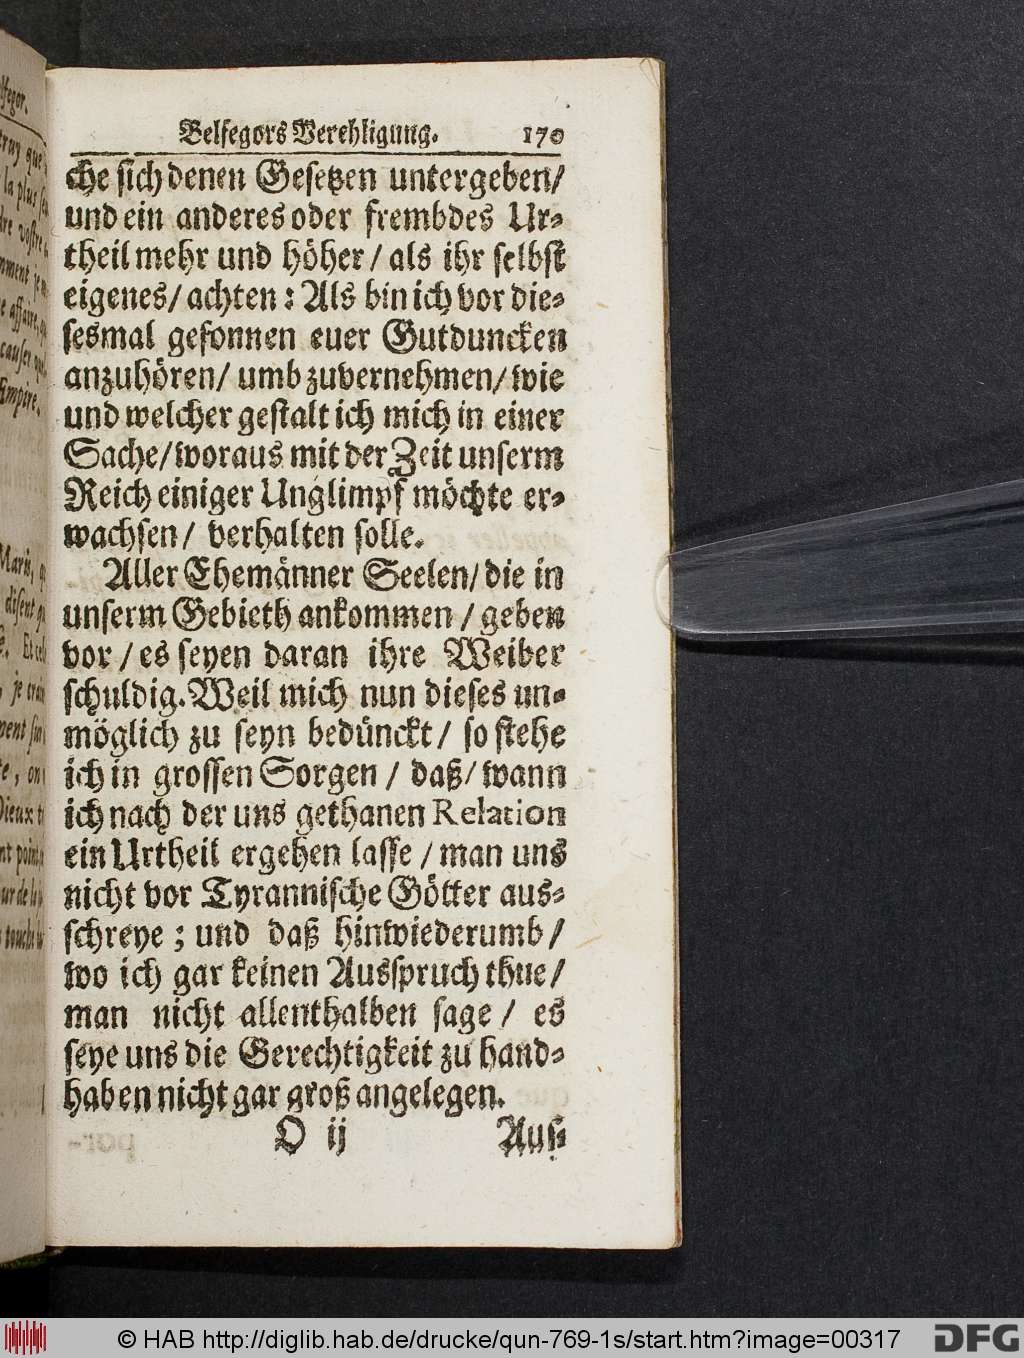 Belfegors Verehligung. 170
che sich denen Gesetzen untergeben/
und ein anderes oder frembdes Ur-
theil mehr und höher / als ihr selbst
eigenes / achten : Als bin ich vor die-
sesmal gesonnen euer Gutduncken
anzuhören / umb zuvernehmen / wie
und welcher gestalt ich mich in einer
Sache / woraus mit der Zeit unserm
Reich einiger Unglimpf möchte er-
wachsen / verhalten solle.
Aller Ehemänner Seelen / die in
unserm Gebieth ankommen / geben
vor / es seyen daran ihre Weiber
schuldig. Weil mich nun dieses un-
möglich zu seyn bedünckt / so stehe
ich in grossen Sorgen / daß / wann
ich nach der uns gethanen Relation
ein Urtheil ergehen lasse / man uns
nicht vor Tyrannische Götter aus-
schreye ; und daß hinwiederumb /
wo ich gar keinen Ausspruch thue /
man nicht allenthalben sage / es
seye uns die Gerechtigkeit zu hand-
haben nicht gar groß angelegen.
O ij Aus-
© HAB http://diglib.hab.de/drucke/qun-769-1s/start.htm?image=00317
DFG